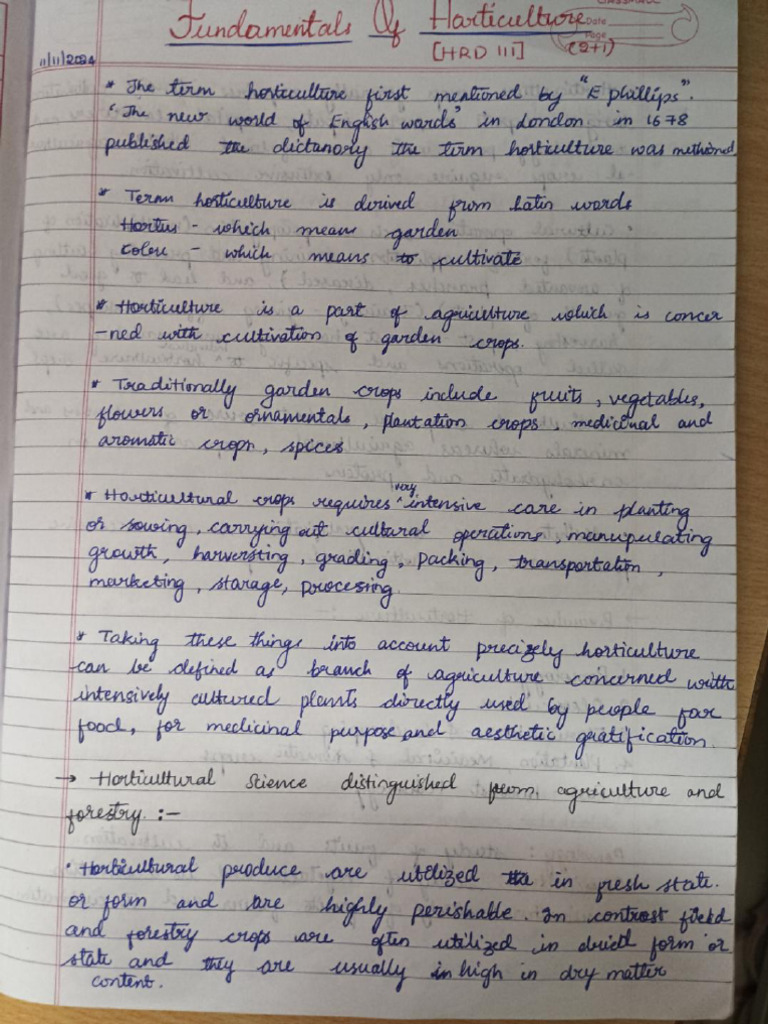 Fundamentals Of Horticulture
Date
Page
[HRD 111] (2+1)
11/11/2024
* The term horticulture first mentioned by "E phillips".
"The new world of English words" in London in 1678
published the dictanory the term horticulture was methioned
* Term horticulture is derived from Latin words
Hortus - which means garden
Colore - which means to cultivate
* Horticulture is a part of agriculture which is concer
-ned with cultivation of garden crops.
* Traditionally garden crops include fruits, vegetables,
flowers or ornamentals, plantation crops, medicinal and
aromatic crops, spices
* Horticultural crops requires very intensive care in planting
or sowing, carrying out cultural operations, manupulating
growth, harversting, grading, packing, transportation,
marketing, starage, procesing.
* Taking these things into account precizely horticulture
can be defined as branch of agriculture concerned with
intensively cultured plants directly used by people for
food, for medicinal purpose, and aesthetic gratification.
→ Horticultural Science distinguished from agriculture and
forestry. :-
• Horticultural produce are utilized in fresh state.
or form and are highly perishable. In contrast field
and forestry crops are often utilized in dried form or
state and they are usually in high in dry matter
content.